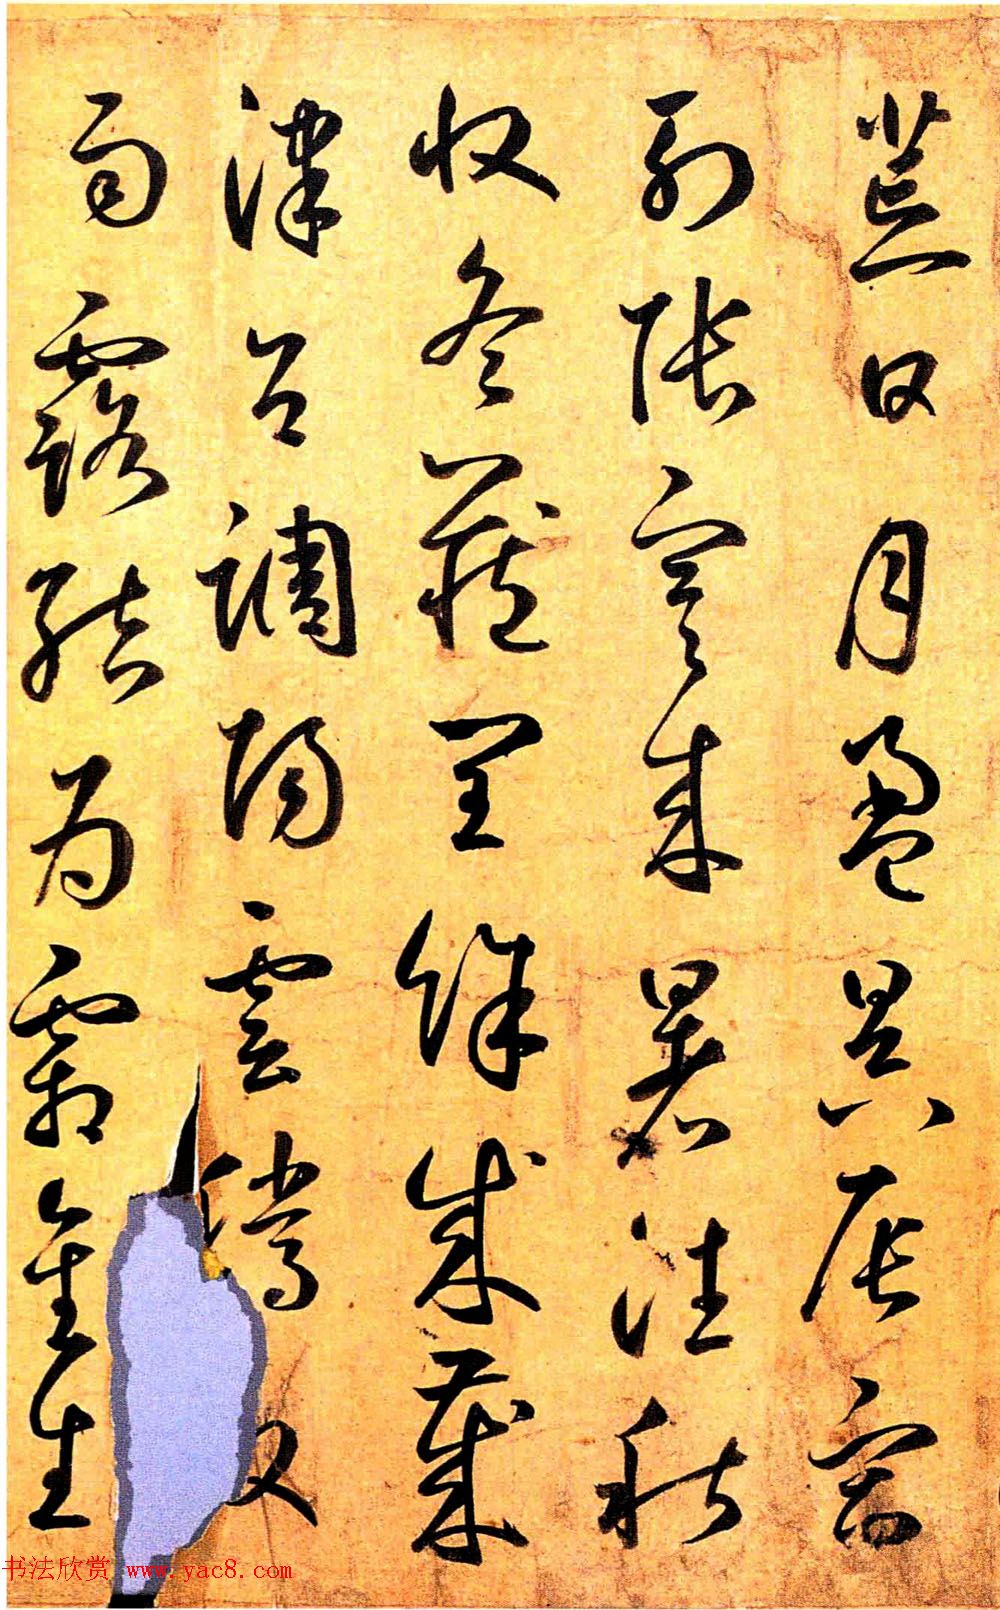 荒日月盈昃辰宿
列張寒來暑往秋
收冬藏閏餘成歲
律呂調陽雲騰
雨露結為霜金生
书法欣赏 www.yac8.com